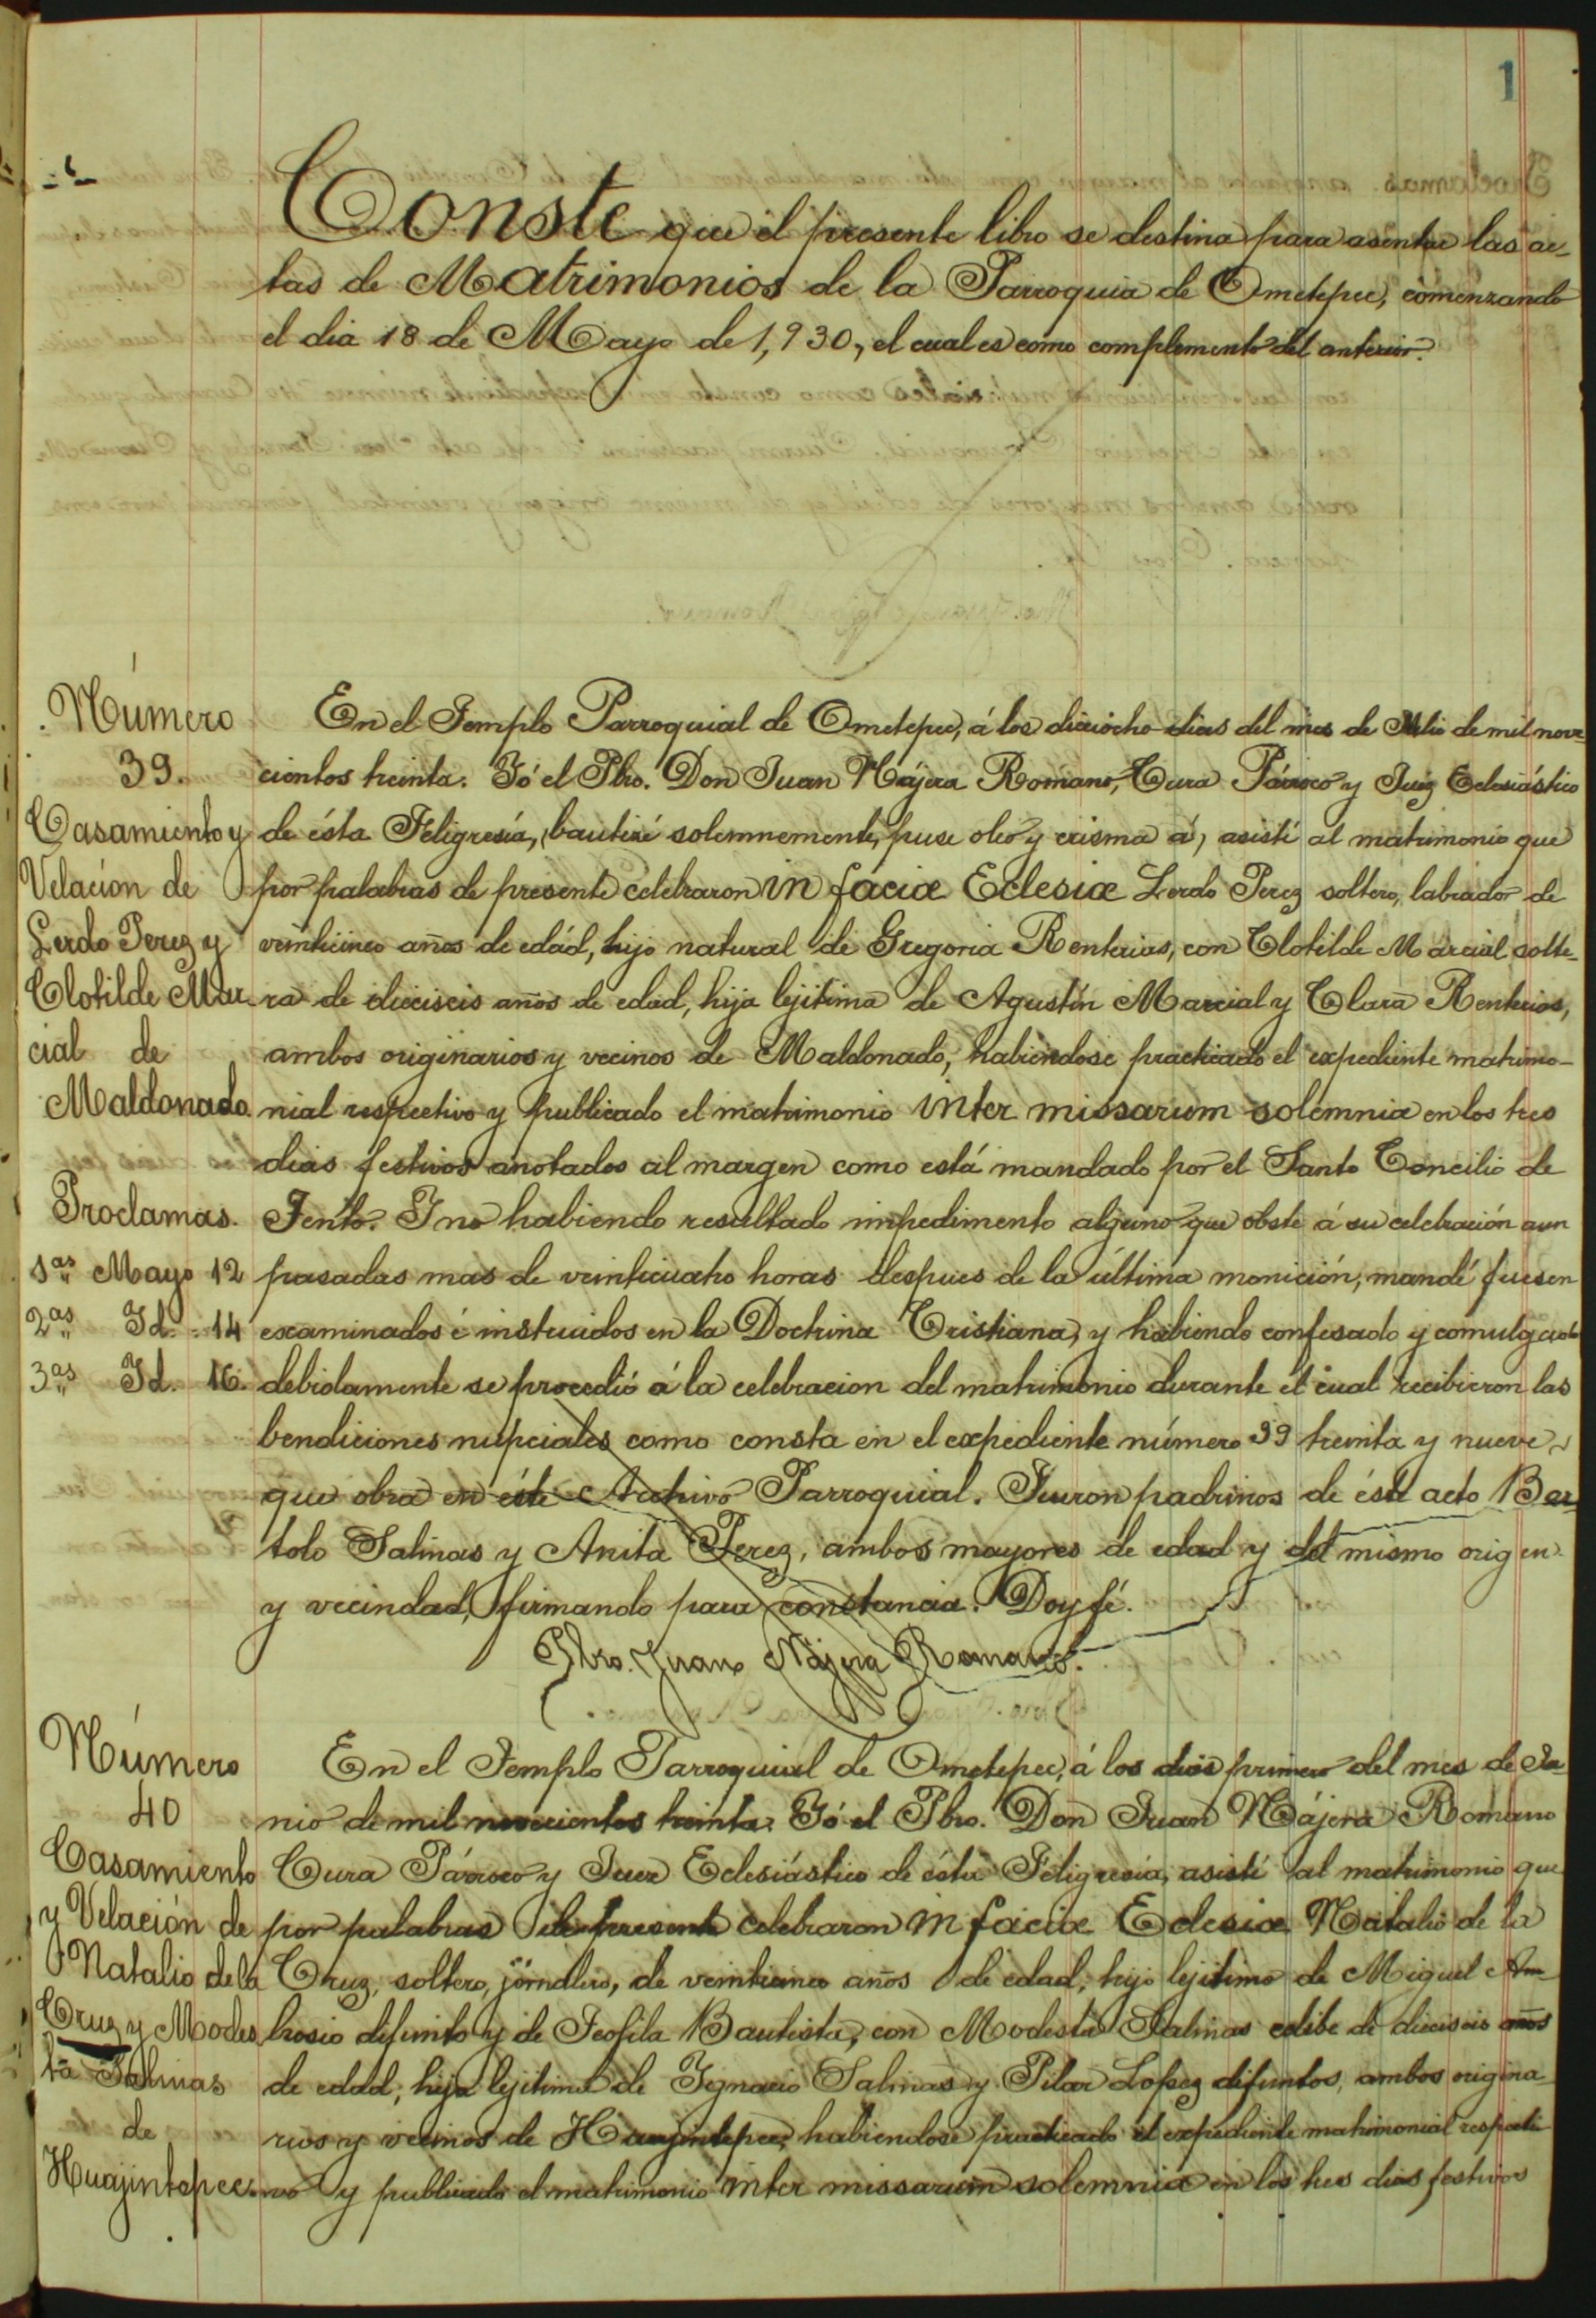 1
Conste que el presente libro se destina para asentar las ac-
tas de Matrimonios de la Parroquia de Ometepec, comenzando
el dia 18 de Mayo de 1,930, el cual es como complemento del anterior.
Número
39.
Casamiento y
Velación de
Lerdo Perez y
Clotilde Mar-
cial de
Maldonado.
Proclamas.
1as Mayo 12
2as Id. 14
3as Id. 16.
En el Templo Parroquial de Ometepec, á los dieciocho dias del mes de de mil nove-
cientos treinta. Yó el Pbro. Don Juan Nájera Romano, Cura Párroco y Juez Eclesiástico
de ésta Feligresía, (bautizé solemnemente, puse oleo y crisma á) asistí al matrimonio que
por palabras de presente celebraron in fáciæ Eclesiæ Lerdo Perez soltero, labrador de
veinticinco años de edád, hijo natural de Gregoria Renterias, con Clotilde Marcial solte-
ra de dieciseis años de edad, hija lejitima de Agustín Marcial y Clara Renterios,
ambos originarios y vecinos de Maldonado, habiéndose practicado el expediente matrimo-
nial respectivo y publicado el matrimonio inter missarum solemnia en los tres
dias festivos anotados al margen como está mandado por el Santo Concilio de
Tento. Y no habiendo resultado impedimento alguno que obste á su celebración aun
pasadas mas de veinticuatro horas despues de la última monición, mandé fuesen
examinados é instruidos en la Doctrina Cristiana, y habiendo confesado y comulgado
debidamente se procedió á la celebracion del matrimonio durante el cual recibieron las
bendiciones nupciales como consta en el expediente número 39 treinta y nueve
que obra en éste Archivo Parroquial. Fueron padrinos de éste acto Bar-
tolo Salinas y Anita Perez, ambos mayores de edad y del mismo origen
y vecindad, firmando para constancia. Doy fé.
Pbro. Juan Nájera Romano.
Número
40
Casamiento
y Velación de
Natalio de la
Cruz y Modes
ta Salinas
de
Huajintepec.
En el Templo Parroquial de Ometepec, á los dias primero del mes de Ju-
nio de mil novecientos treinta. Yó el Pbro. Don Juan Nájera Romano
Cura Párroco y Juez Eclesiástico de ésta Feligresía, asistí al matrimonio que
por palabras de presente celebraron in faciæ Eclesiæ Natalio de la
Cruz, soltero, jornalero, de veintiunco años de edad, hijo lejitimo de Miguel Am-
brosio difunto y de Teofila Bautista, con Modesta Salinas celibe de dieciseis años
de edad, hija lejitima de Ygnacio Salinas y Pilar Lopez difuntos, ambos origina-
rios y vecinos de Huajintepec, habiendose practicado el expediente matrimonial respecti
vo y publicado el matrimonio inter missarum solemnia en los tres dias festivos